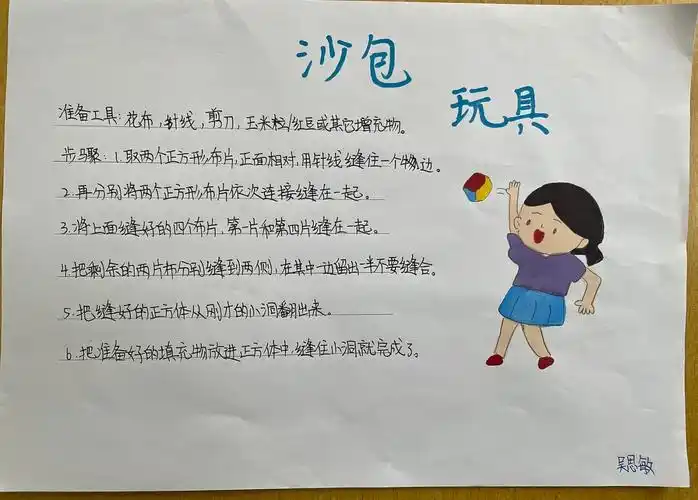 沙包
玩具
准备工具:花布,针线,剪刀,玉米粒/红豆或其它增充物。
步骤:1.取两个正方形布片,正面相对,用针线缝住一个边。
2.再分别将两个正方形布片依次连接缝在一起。
3.将上面缝好的四个布片,第一片和第四片缝在一起。
4.把剩余的两片布分别缝到两侧,在其中一边留出一半不要缝合。
5.把缝好的正方体从刚才的小洞翻出来。
6.把准备好的填充物放进正方体中,缝住小洞就完成了。
吴思敏